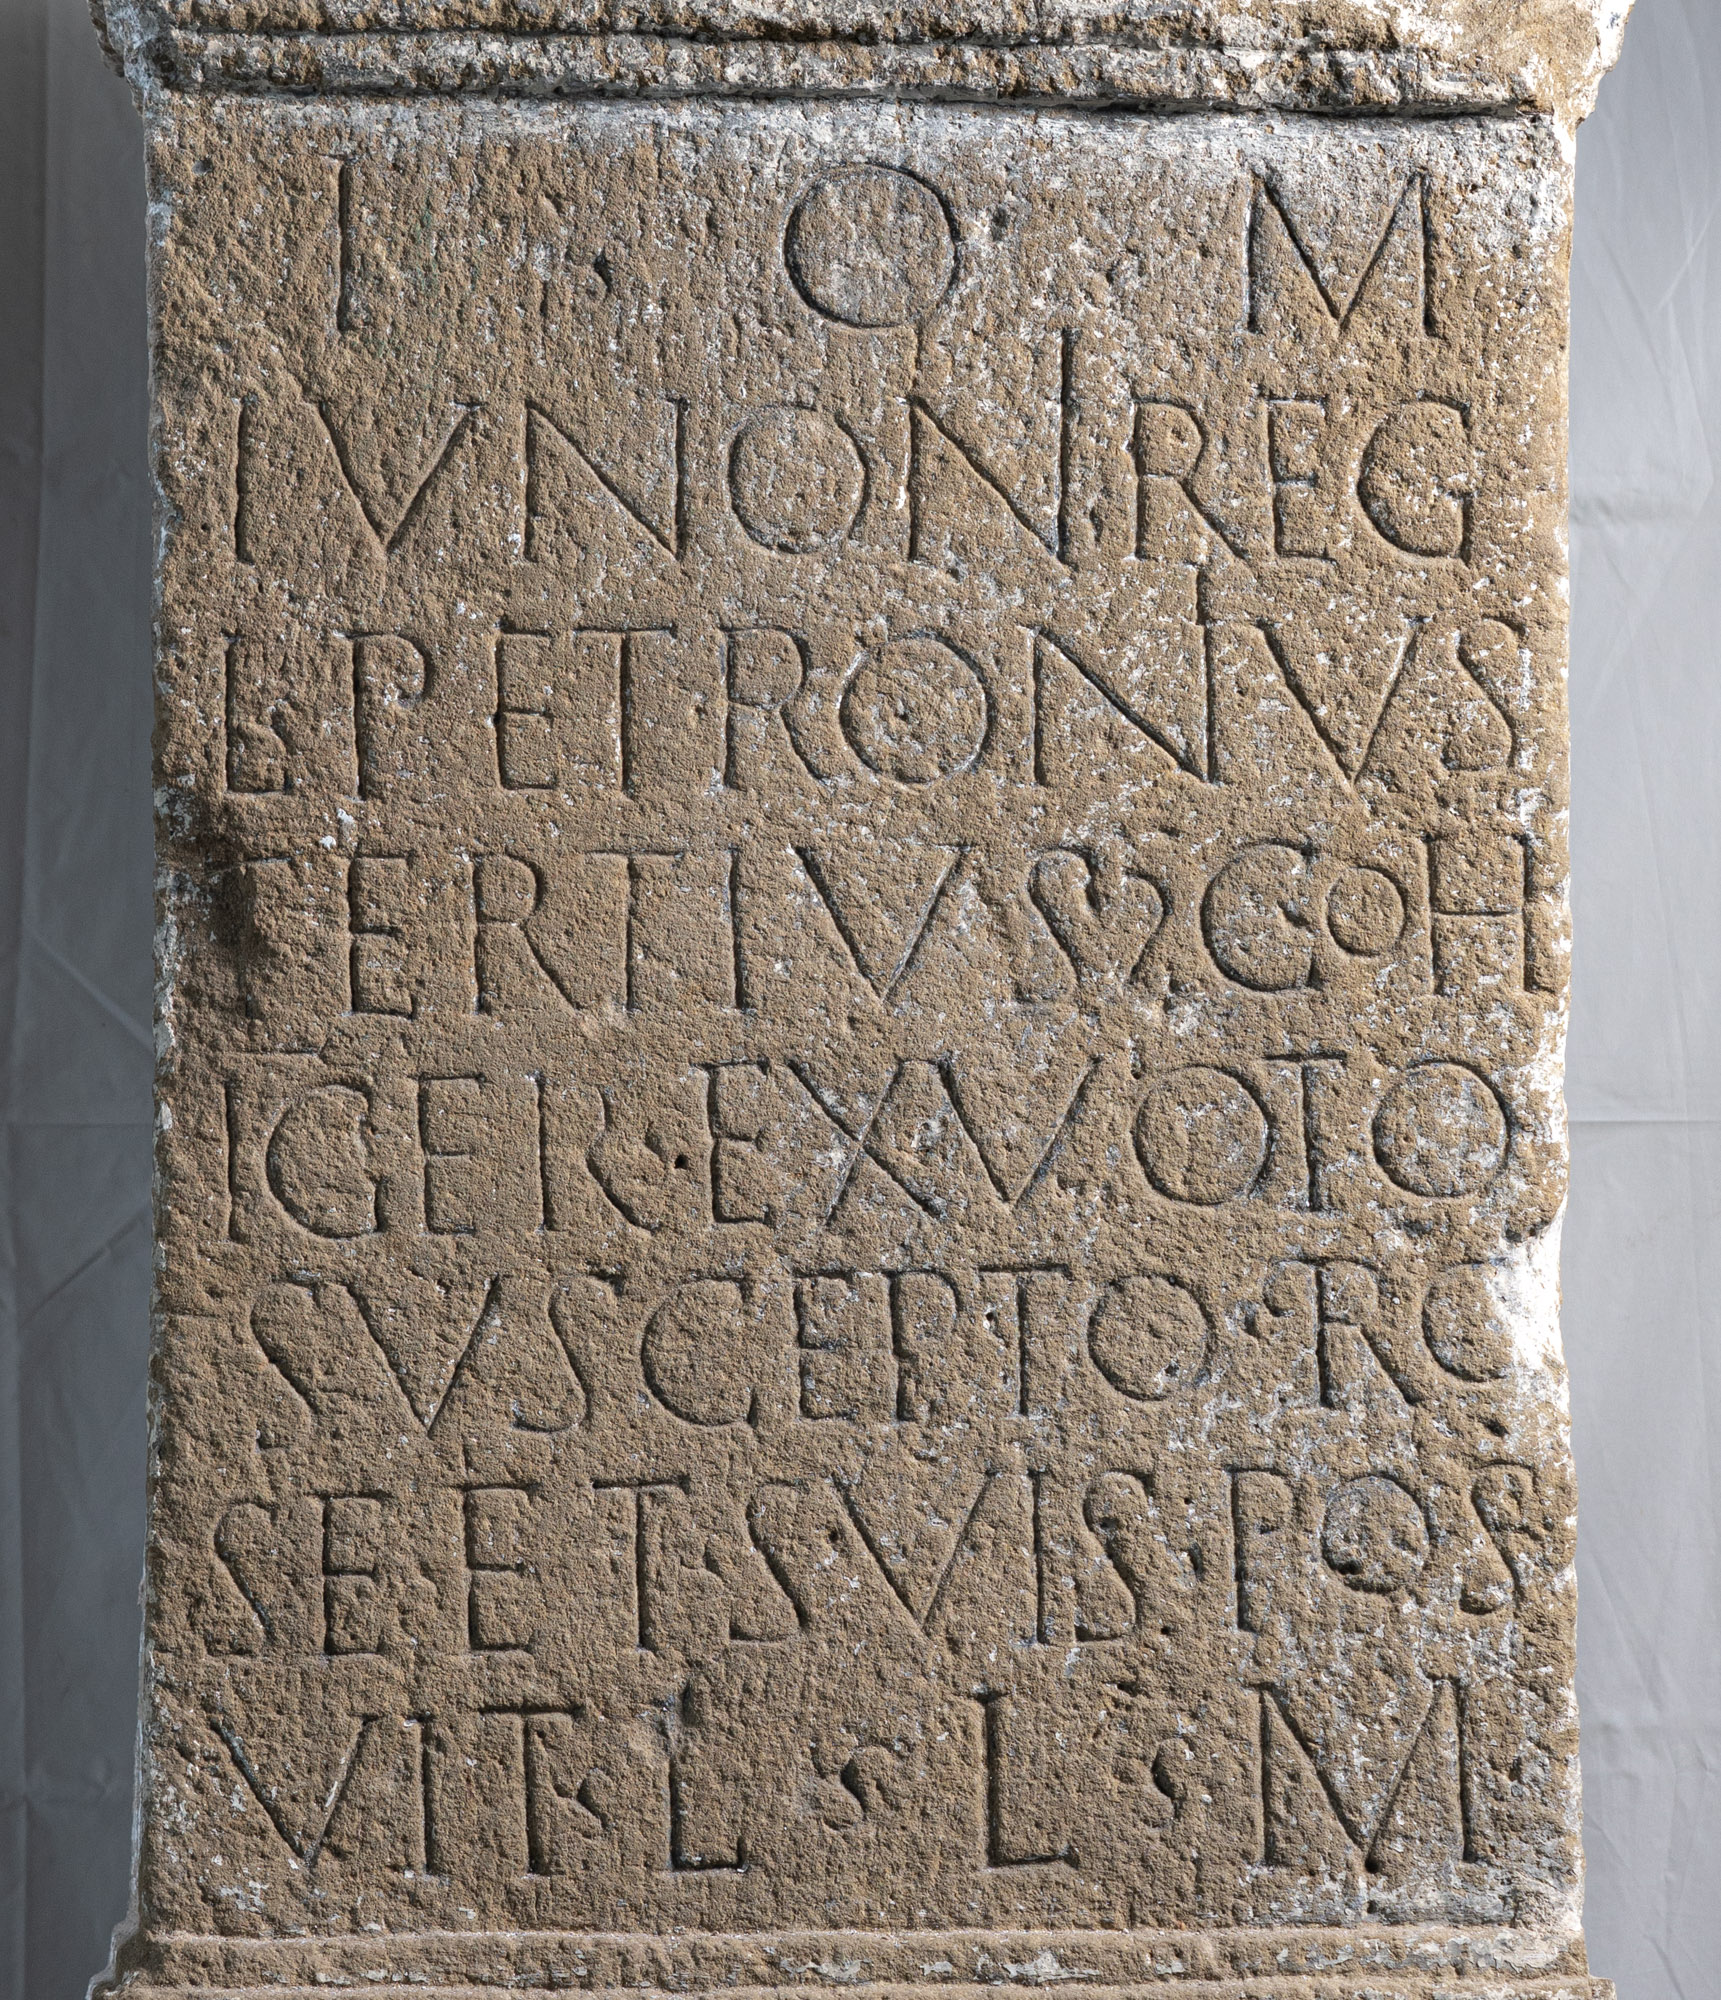 I · O · M
IVNONI · REG
L · PETRONIVS
TERTIVS COH
I GER · EX VOTO
SVSCEPTO · PRO
SE ET · SVIS · POS
VIT · L · L · M